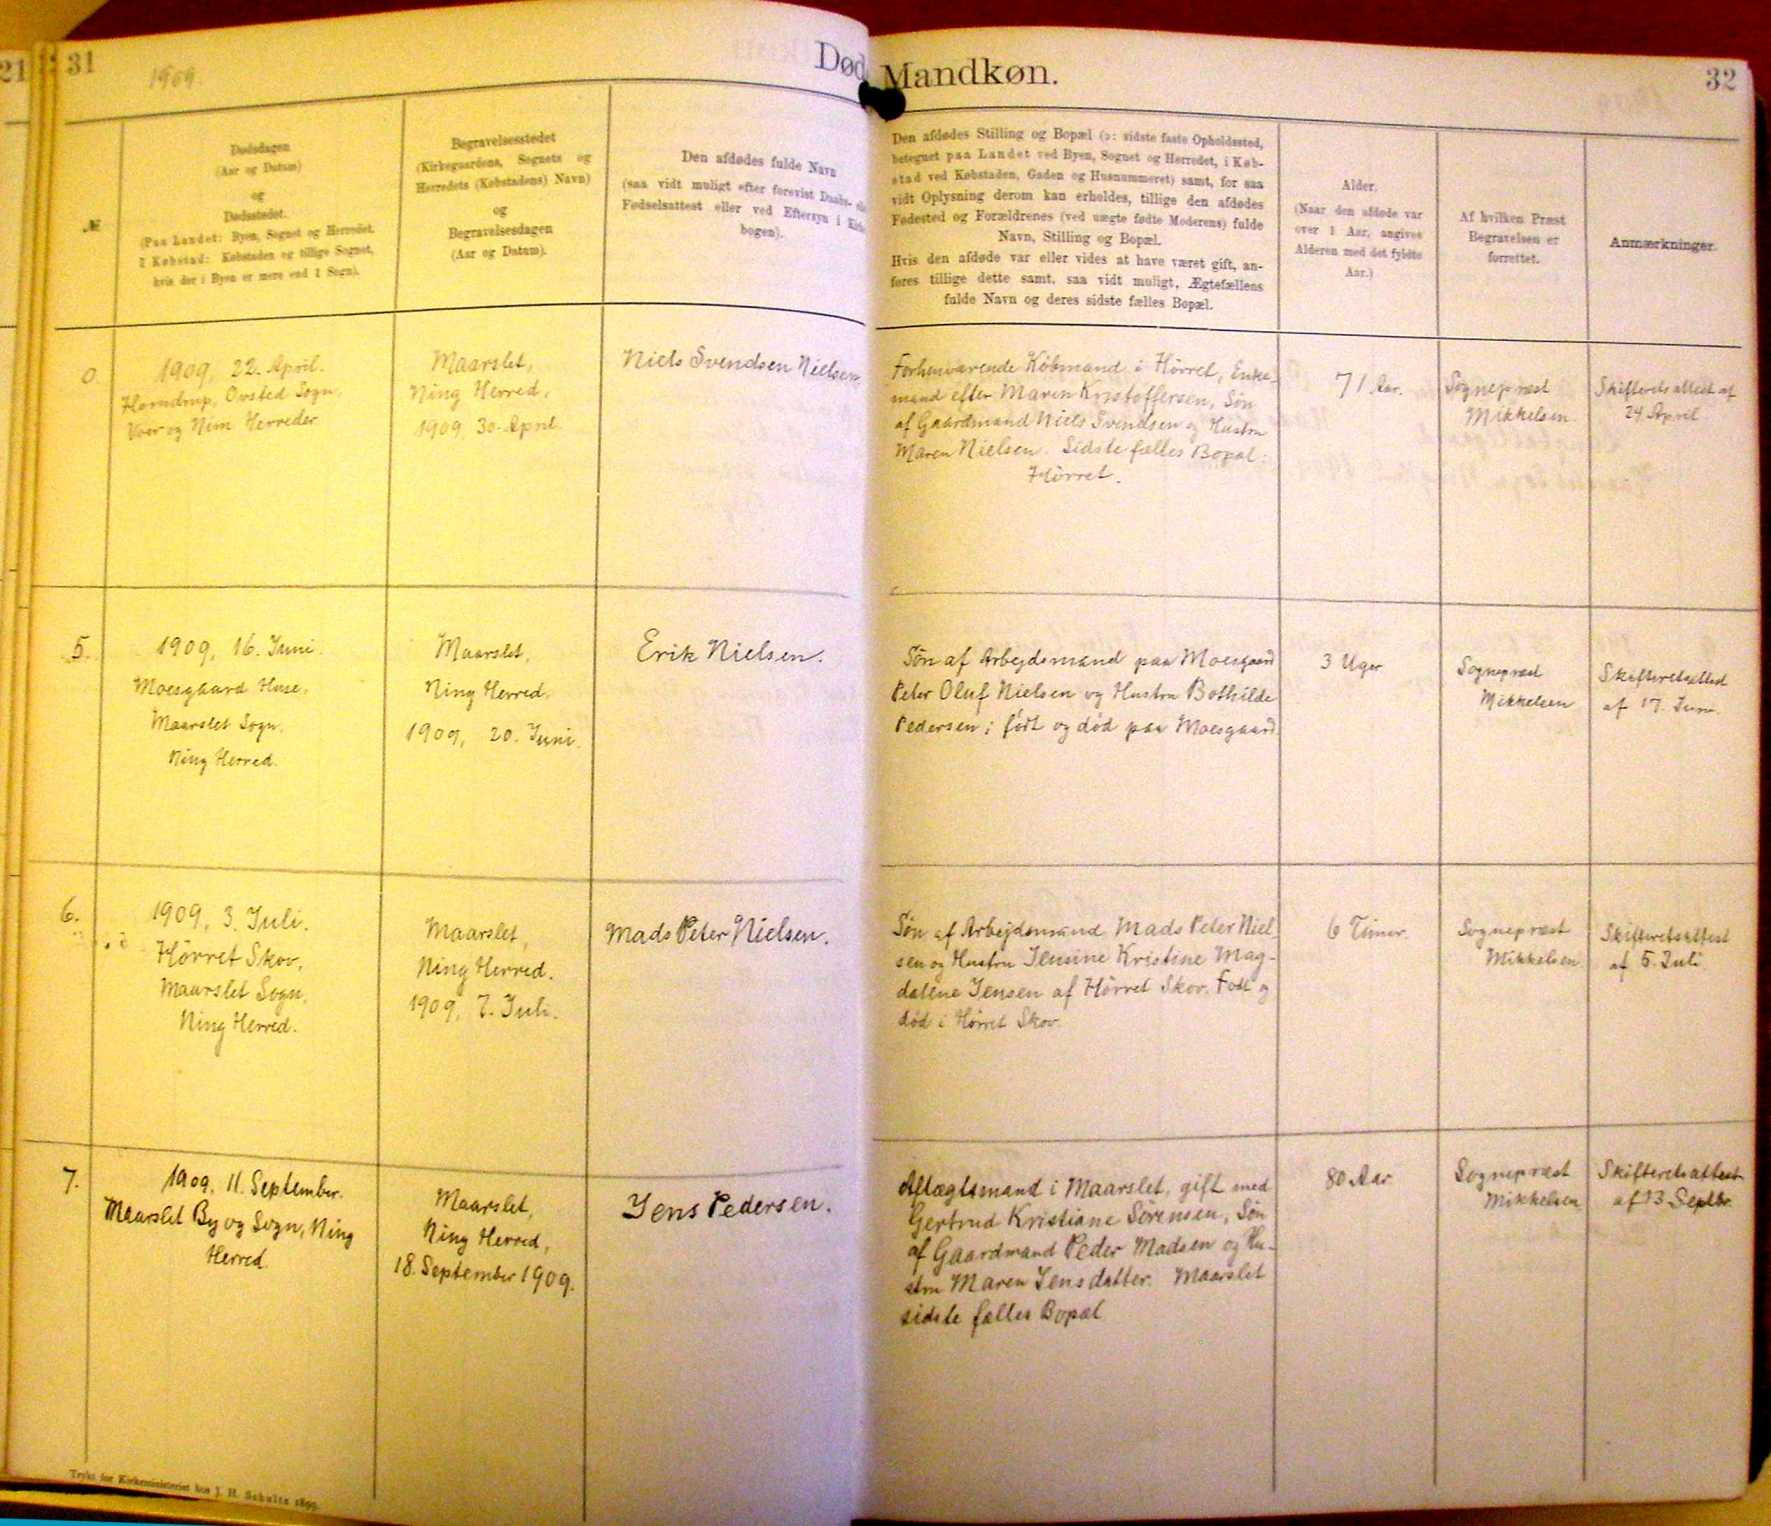 21
31
1909.
Død
Mandkøn.
32
№
Dødsdagen
(Aar og Datum)
og
Dødsstedet.
(Paa Landet: Byen, Sognet og Herredet.
I Købstad: Købstaden og tillige Sognet,
hvis der i Byen er mere end 1 Sogn).
Begravelsesstedet
(Kirkegaardens, Sognets og
Herredets (Købstadens) Navn)
og
Begravelsesdagen
(Aar og Datum).
Den afdødes fulde Navn
(saa vidt muligt efter forevist Daabs-
Fødselsattest eller ved Eftersyn i
bogen).
Den afdødes Stilling og Bopæl (ɔ: sidste faste Opholdssted,
betegnet paa Landet ved Byen, Sognet og Herredet, i Køb-
stad ved Købstaden, Gaden og Husnummeret) samt, for saa
vidt Oplysning derom kan erholdes, tillige den afdødes
Fødested og Forældrenes (ved uægte fødte Moderens) fulde
Navn, Stilling og Bopæl.
Hvis den afdøde var eller vides at have været gift, an-
føres tillige dette samt, saa vidt muligt, Ægtefællens
fulde Navn og deres sidste fælles Bopæl.
Alder.
(Naar den afdøde var
over 1 Aar, angives
Alderen med det fyldte
Aar.)
Af hvilken Præst
Begravelsen er
forrettet.
Anmærkninger.
0
1909, 22. April.
Horndrup, Ovsted Sogn,
Voer og Nim Herreder
Maarslet,
Ning Herred,
1909, 30. April.
Niels Svendsen Nielsen.
Forhenværende Købmand i Hørret, Enke-
mand efter Maren Kristoffersen, Søn
af Gaardmand Niels Svendsen og Hustru
Maren Nielsen. Sidste fælles Bopæl:
Hørret.
71 Aar.
Sognepræst
Mikkelsen
Skifterets attest af
24 April
5.
1909, 16. Juni.
Moesgaard Huse,
Maarslet Sogn,
Ning Herred.
Maarslet,
Ning Herred.
1909, 20. Juni.
Erik Nielsen.
Søn af Arbejdsmand paa Moesgaard
Peter Oluf Nielsen og Hustru Bothilde
Pedersen; født og død paa Moesgaard
3 Uger
Sognepræst
Mikkelsen
Skifteretsattest
af 17. Juni.
6.
1909, 3. Juli.
Hørret Skov,
Maarslet Sogn,
Ning Herred.
Maarslet,
Ning Herred.
1909, 7. Juli.
Mads Peter Nielsen.
Søn af Arbejdsmand Mads Peter Niel-
sen og Hustru Jensine Kristine Mag-
dalene Jensen af Hørret Skov. Født og
død i Hørret Skov.
6 Timer.
Sognepræst
Mikkelsen
Skifteretsattest
af 5. Juli
7.
1909, 11. September.
Maarslet By og Sogn, Ning
Herred.
Maarslet,
Ning Herred,
18. September 1909.
Jens Pedersen.
Aftægtsmand i Maarslet, gift med
Gertrud Kristiane Sørensen, Søn
af Gaardmand Peder Madsen og Hu-
stru Maren Jensdatter. Maarslet
sidste fælles Bopæl
80 Aar
Sognepræst
Mikkelsen
Skifteretsattest
af 13 Septbr.
Trykt for Kirkeministeriet hos J. H. Schultz 1899.